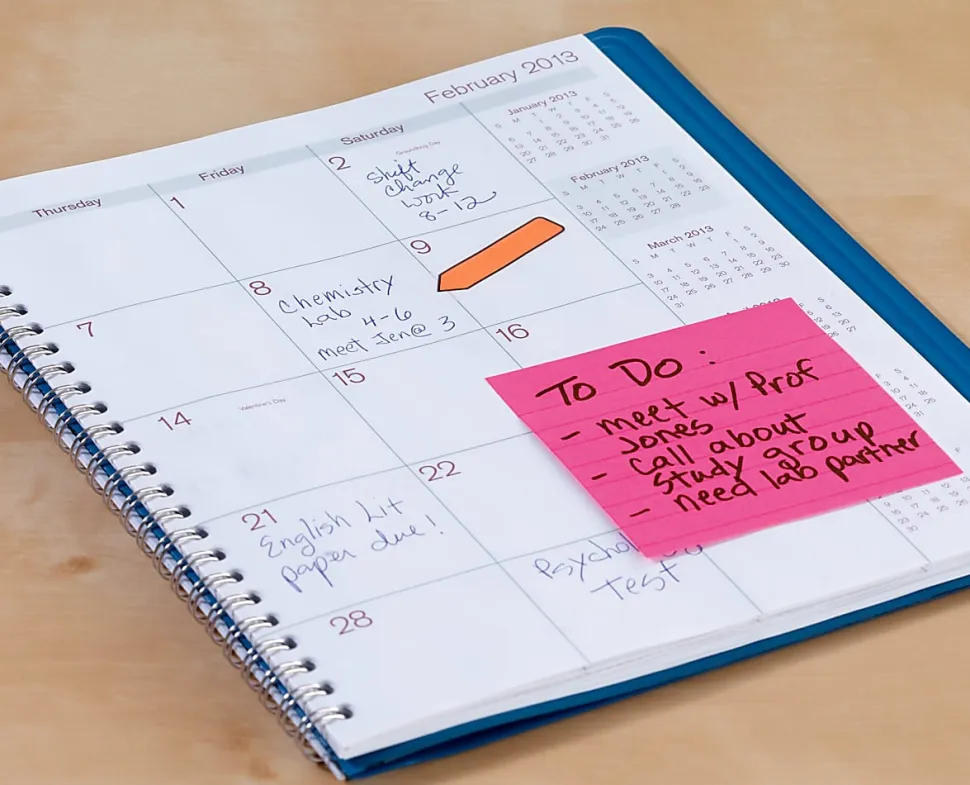 February 2013
Thursday Friday Saturday
1
2 Groundhog Day
shift
change
work
8-12
7
8
Chemistry
Lab
4-6
meet Jen@ 3
9
14 Valentine's Day
15
16
21
English Lit
paper due!
22
Test
28
January 2013
S M T W T F S
February 2013
March 2013
S M T W T F S
To Do :
- meet w/ Prof
Jones
- Call about
study group
- need lab partner